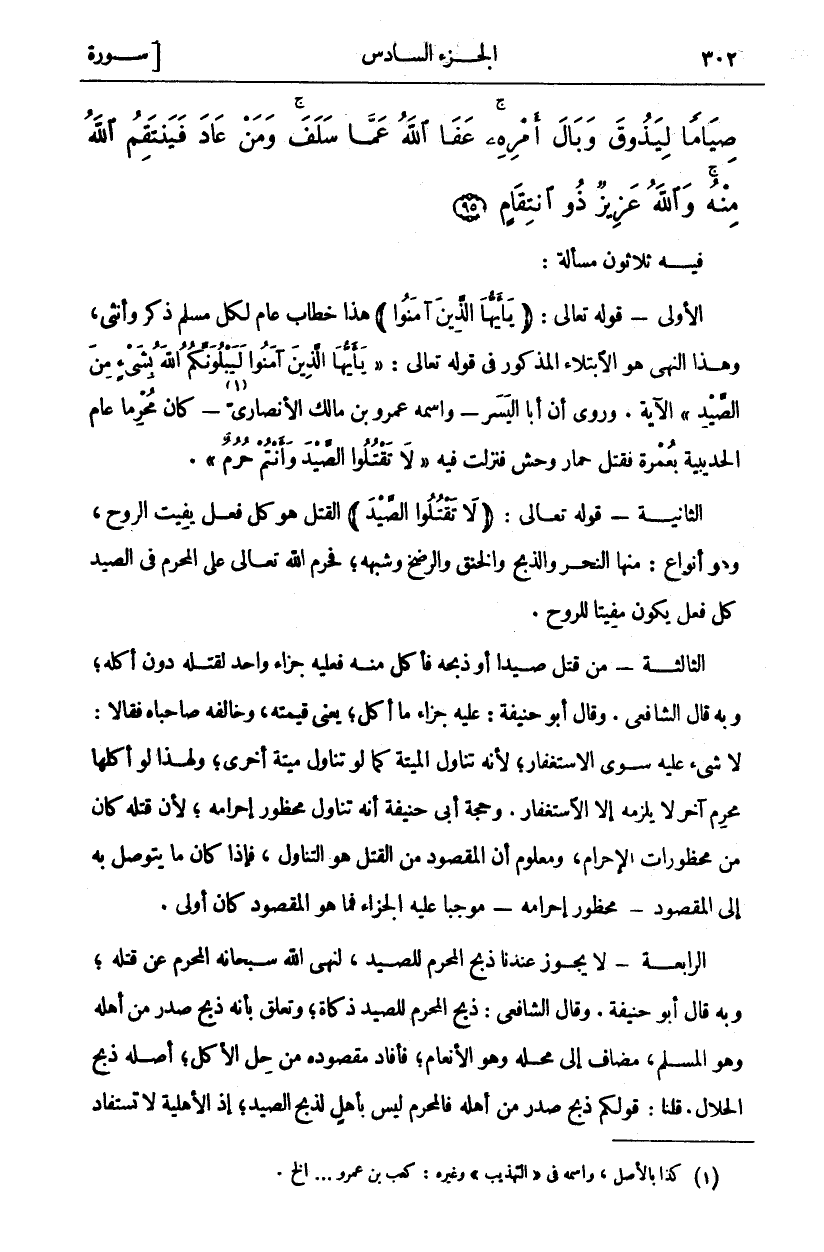 ٣٠٢ الجزء السادس [ سورة
صِيَامًا لِيَذُوقَ وَبَالَ أَمْرِهِۦ ۚ عَفَا ٱللَّهُ عَمَّا سَلَفَ ۚ وَمَنْ عَادَ فَيَنتَقِمُ ٱللَّهُ
مِنْهُ ۚ وَٱللَّهُ عَزِيزٌ ذُو ٱنتِقَامٍ ﴿٩٥﴾
فيه ثلاثون مسألة :
الأولى – قوله تعالى : ﴿ يَأَيُّهَا الَّذِينَ آمَنُوا ﴾ هذا خطاب عام لكل مسلم ذكر وأنثى،
وهذا النهى هو الابتلاء المذكور فى قوله تعالى : « يَأَيُّهَا الَّذِينَ آمَنُوا لَيَبْلُوَنَّكُمُ اللهُ بِشَىْءٍ مِنَ
الصَّيْدِ » الآية . وروى أن أبا اليَسَر – واسمه عمرو بن مالك الأنصارىّ (١) – كان مُحْرِما عام
الحديبية بعُمْرة فقتل حمار وحش فنزلت فيه « لَا تَقْتُلُوا الصَّيْدَ وَأَنْتُمْ حُرُمٌ » .
الثانية – قوله تعالى : ﴿ لَا تَقْتُلُوا الصَّيْدَ ﴾ القتل هو كل فعل يفيت الروح ،
وهو أنواع : منها النحر والذبح والخنق والرضخ وشبهه؛ فحرم الله تعالى على المحرم فى الصيد
كل فعل يكون مفيتا للروح .
الثالثة – من قتل صيدا أو ذبحه فأكل منه فعليه جزاء واحد لقتله دون أكله؛
وبه قال الشافعى . وقال أبو حنيفة : عليه جزاء ما أكل؛ يعنى قيمته، وخالفه صاحباه فقالا :
لا شىء عليه سوى الاستغفار؛ لأنه تناول الميتة كما لو تناول ميتة أخرى؛ ولهذا لو أكلها
محرِم آخر لا يلزمه إلا الاستغفار . وحجة أبى حنيفة أنه تناول محظور إحرامه ؛ لأن قتله كان
من محظورات الإحرام، ومعلوم أن المقصود من القتل هو التناول ، فإذا كان ما يتوصل به
إلى المقصود – محظور إحرامه – موجبا عليه الجزاء فما هو المقصود كان أولى .
الرابعة – لا يجوز عندنا ذبح المحرم للصيد ، لنهى الله سبحانه المحرم عن قتله ؛
وبه قال أبو حنيفة . وقال الشافعى : ذبح المحرم للصيد ذكاة؛ وتعلق بأنه ذبح صدر من أهله
وهو المسلم، مضاف إلى محله وهو الأنعام؛ فأفاد مقصوده من حِل الأكل؛ أصله ذبح
الحلال. قلنا : قولكم ذبح صدر من أهله فالمحرم ليس بأهل لذبح الصيد؛ إذ الأهلية لا تستفاد
(١) كذا بالأصل ، واسمه فى « التهذيب » وغيره : كعب بن عمرو ... الخ .